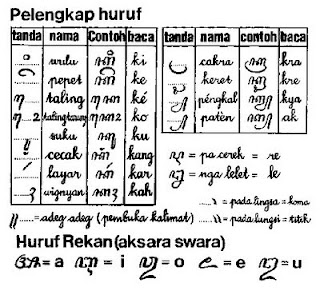 Pelengkap huruf
tanda nama Contoh baca
ꦶ wulu ꦏꦶ ki
ꦼ pepet ꦏꦼ ke
ꦺ taling ꦏꦺ ké
ꦺꦴ talingtarung ꦏꦺꦴ ko
ꦸ suku ꦏꦸ ku
ꦁ cecak ꦏꦁ kang
ꦂ layar ꦏꦂ kar
ꦃ wignyan ꦏꦃ kah
tanda nama contoh baca
ꦿ cakra ꦏꦿ kra
ꦽ keret ꦏꦽ kre
ꦾ péngkal ꦏꦾ kya
꧀ patèn ak
ꦉ = pa cerek = re
ꦊ = nga lelet = le
꧈ = pada lingsa = koma
꧉ = pada lungsi = titik
꧋ ...... = adeg adeg (pembuka kalimat)
Huruf Rekan (aksara swara)
ꦄ = a ꦆ = i ꦎ = o ꦌ = e ꦈ = u